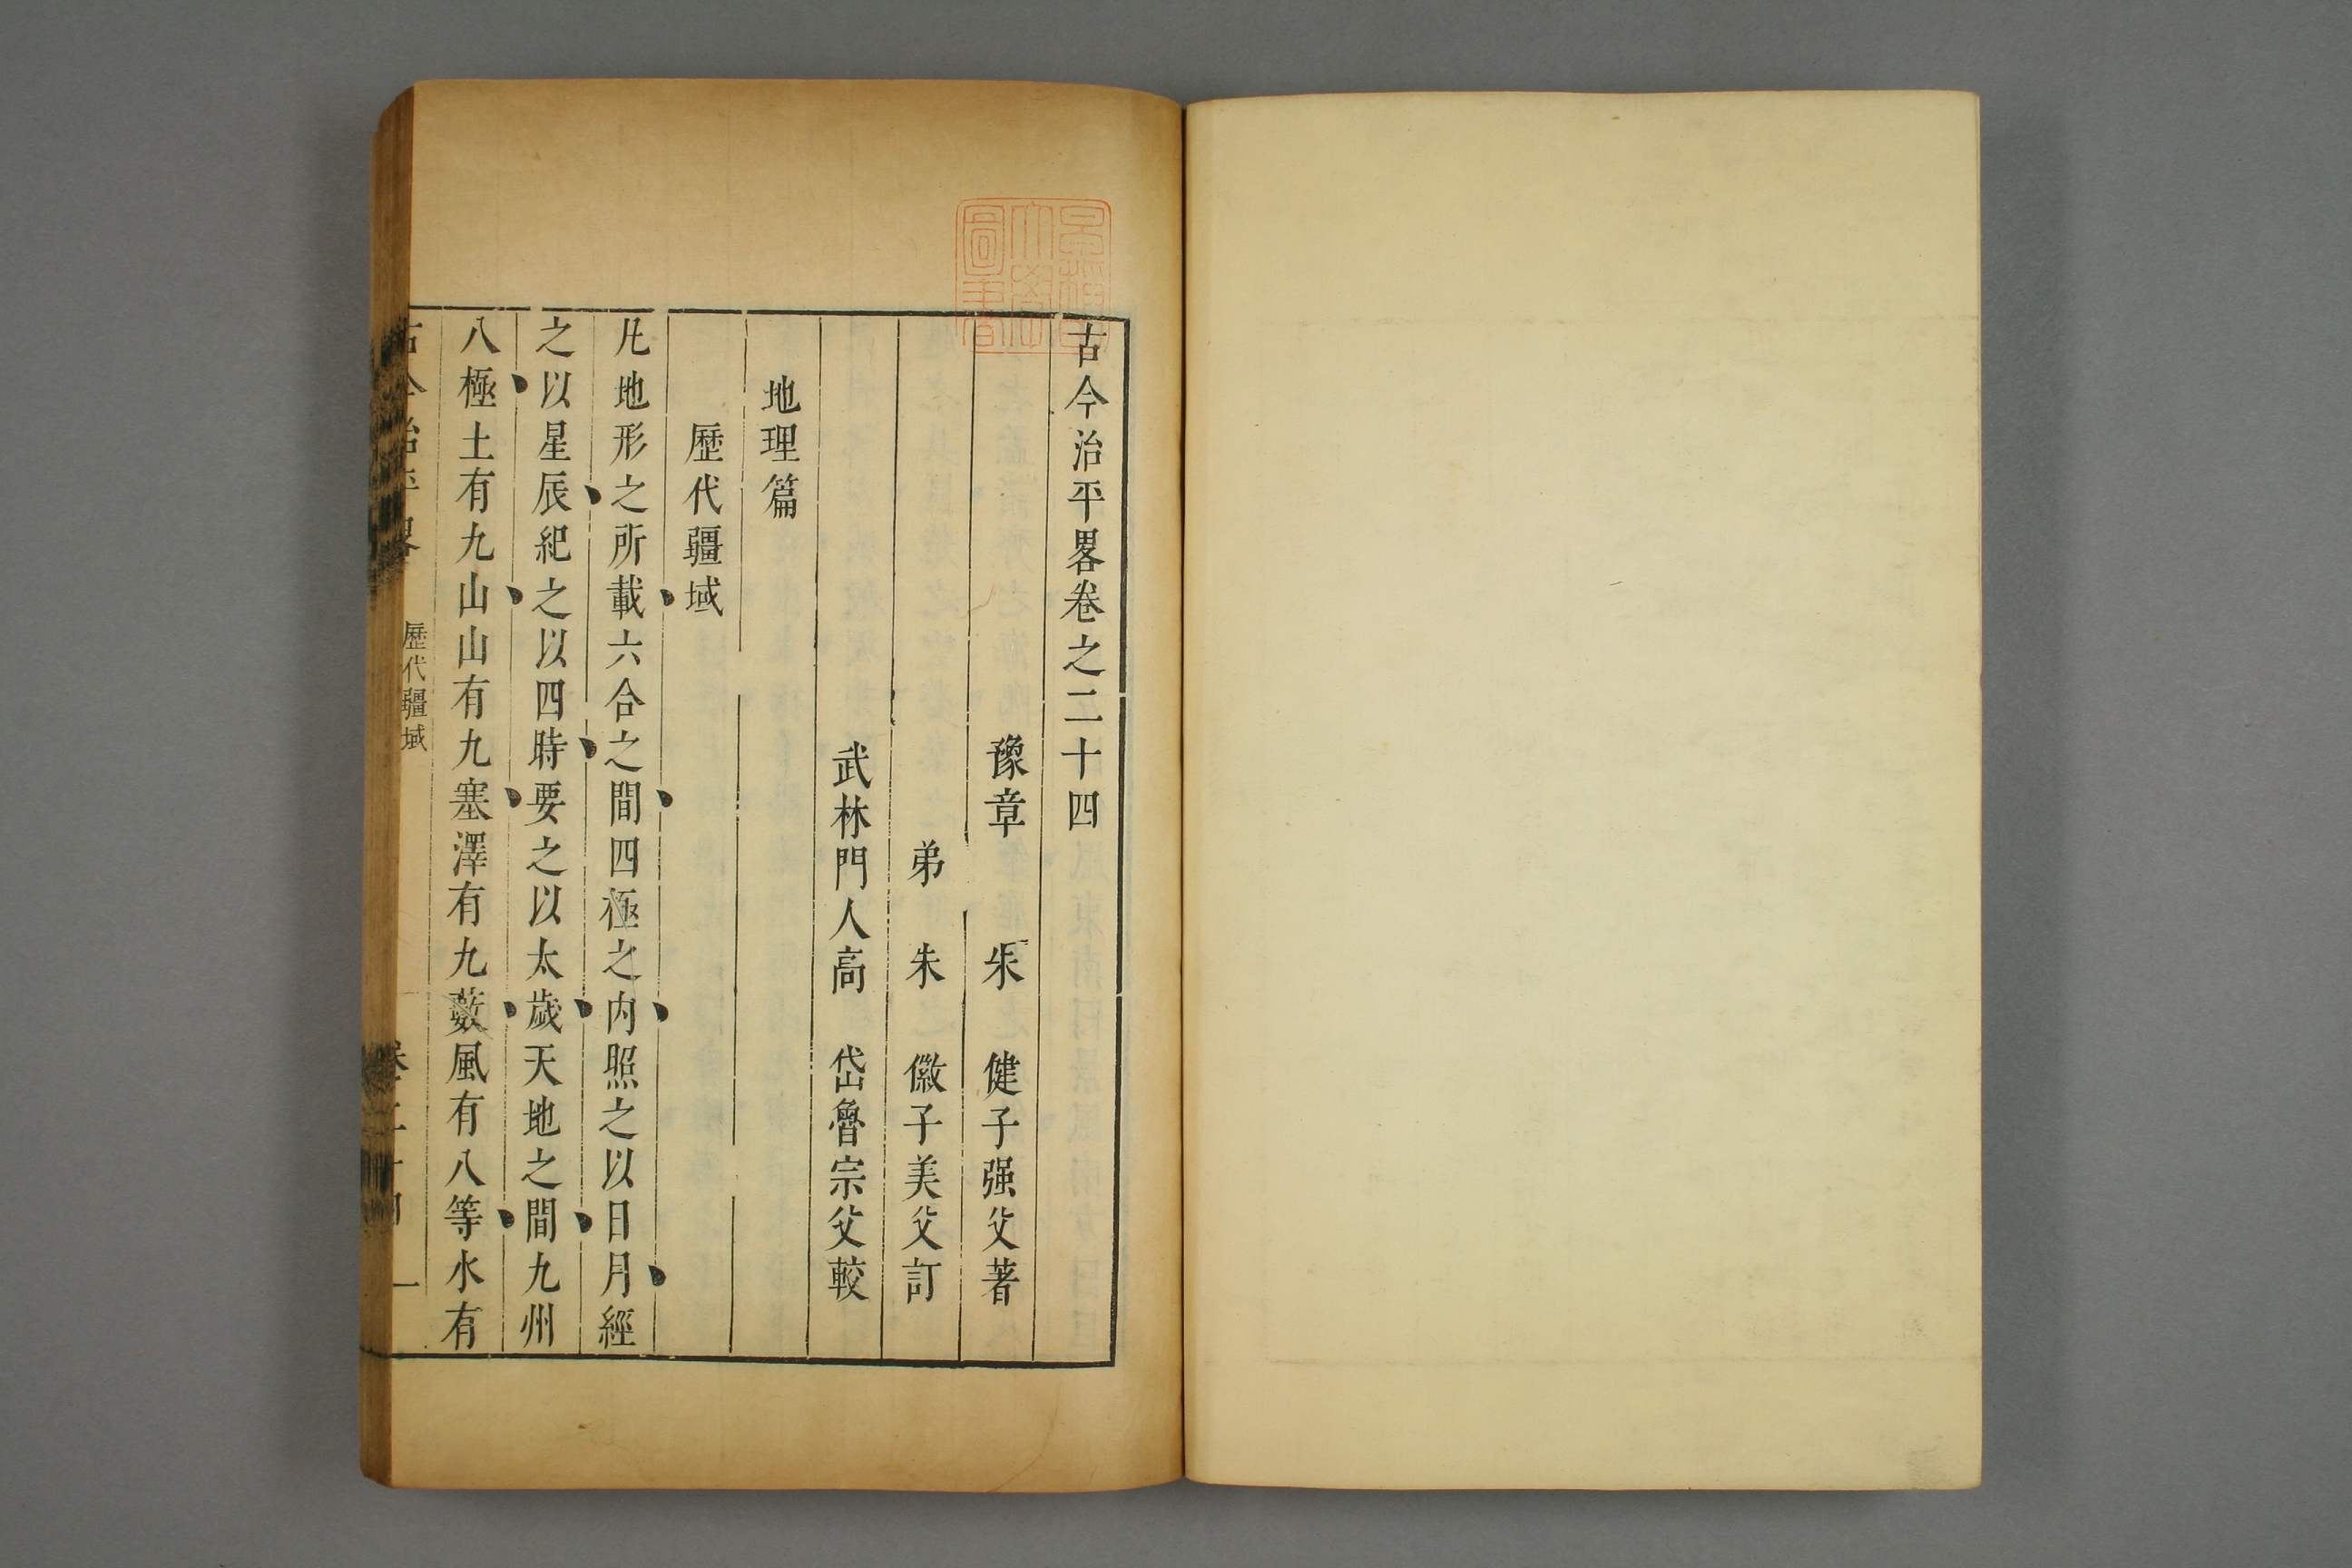 古今治平畧卷之二十四
豫章 朱 健子强父著
弟 朱 徽子美父訂
武林門人高 岱魯宗父較
地理篇
歷代疆域
凡地形之所載六合之間四極之内照之以日月經
之以星辰紀之以四時要之以太歲天地之間九州
八極土有九山山有九塞澤有九藪風有八等水有
古今治平畧 歷代疆域 卷二十四 一